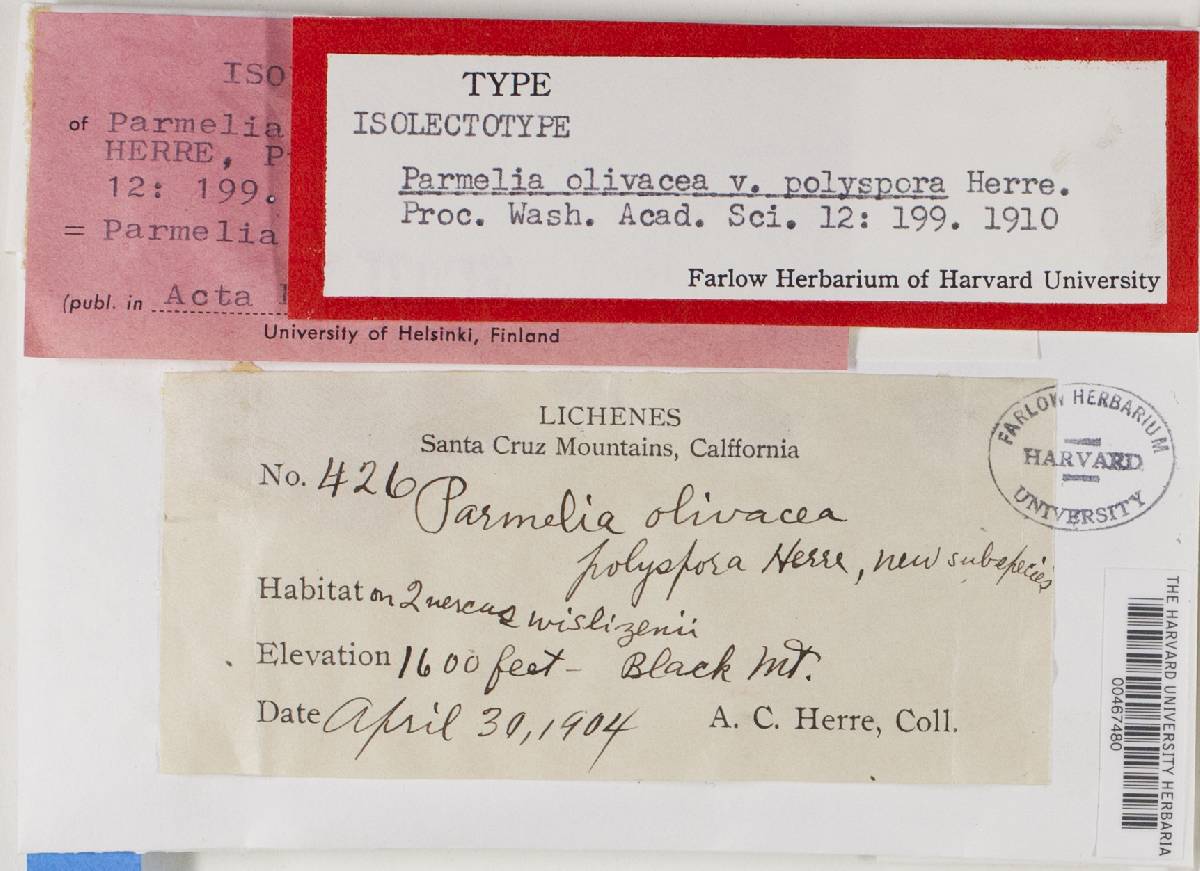 ISO
of Parmelia
HERRE, P
12: 199.
= Parmelia
(publ. in Acta
University of Helsinki, Finland
TYPE
ISOLECTOTYPE
Parmelia olivacea v. polyspora Herre.
Proc. Wash. Acad. Sci. 12: 199. 1910
Farlow Herbarium of Harvard University
LICHENES
Santa Cruz Mountains, Calffornia
No. 426 Parmelia olivacea
polyspora Herre, new subspecies
Habitat on Quercus wislizenii
Elevation 1600 feet - Black Mt.
Date April 30, 1904 A. C. Herre, Coll.
FARLOW HERBARIUM
HARVARD
UNIVERSITY
THE HARVARD UNIVERSITY HERBARIA
00467480